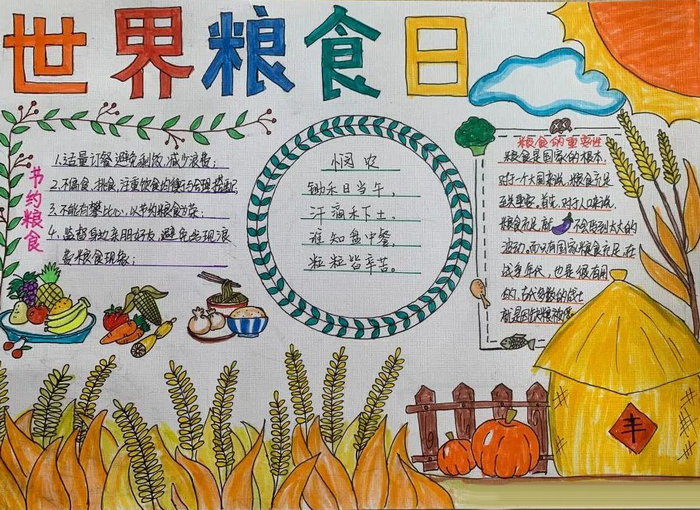 世界粮食日
节约粮食
1.适量订餐,避免剩饭,减少浪费;
2.不偏食,挑食,注重饮食均衡与合理搭配
3.不能有攀比心,以节约粮食为荣;
4.监督身边亲朋好友,避免出现浪
费粮食现象;
悯农
锄禾日当午,
汗滴禾下土。
谁知盘中餐,
粒粒皆辛苦。
粮食的重要性
粮食是国家的根本,
对于一个大国来说,粮食充足
至关重要,首先,对于人口来说,
粮食充足,就不会有到太大的
波动。而只有国家粮食充足,在
战争年代,也是很有用
的,古代多数的战士
就是因缺粮被
丰